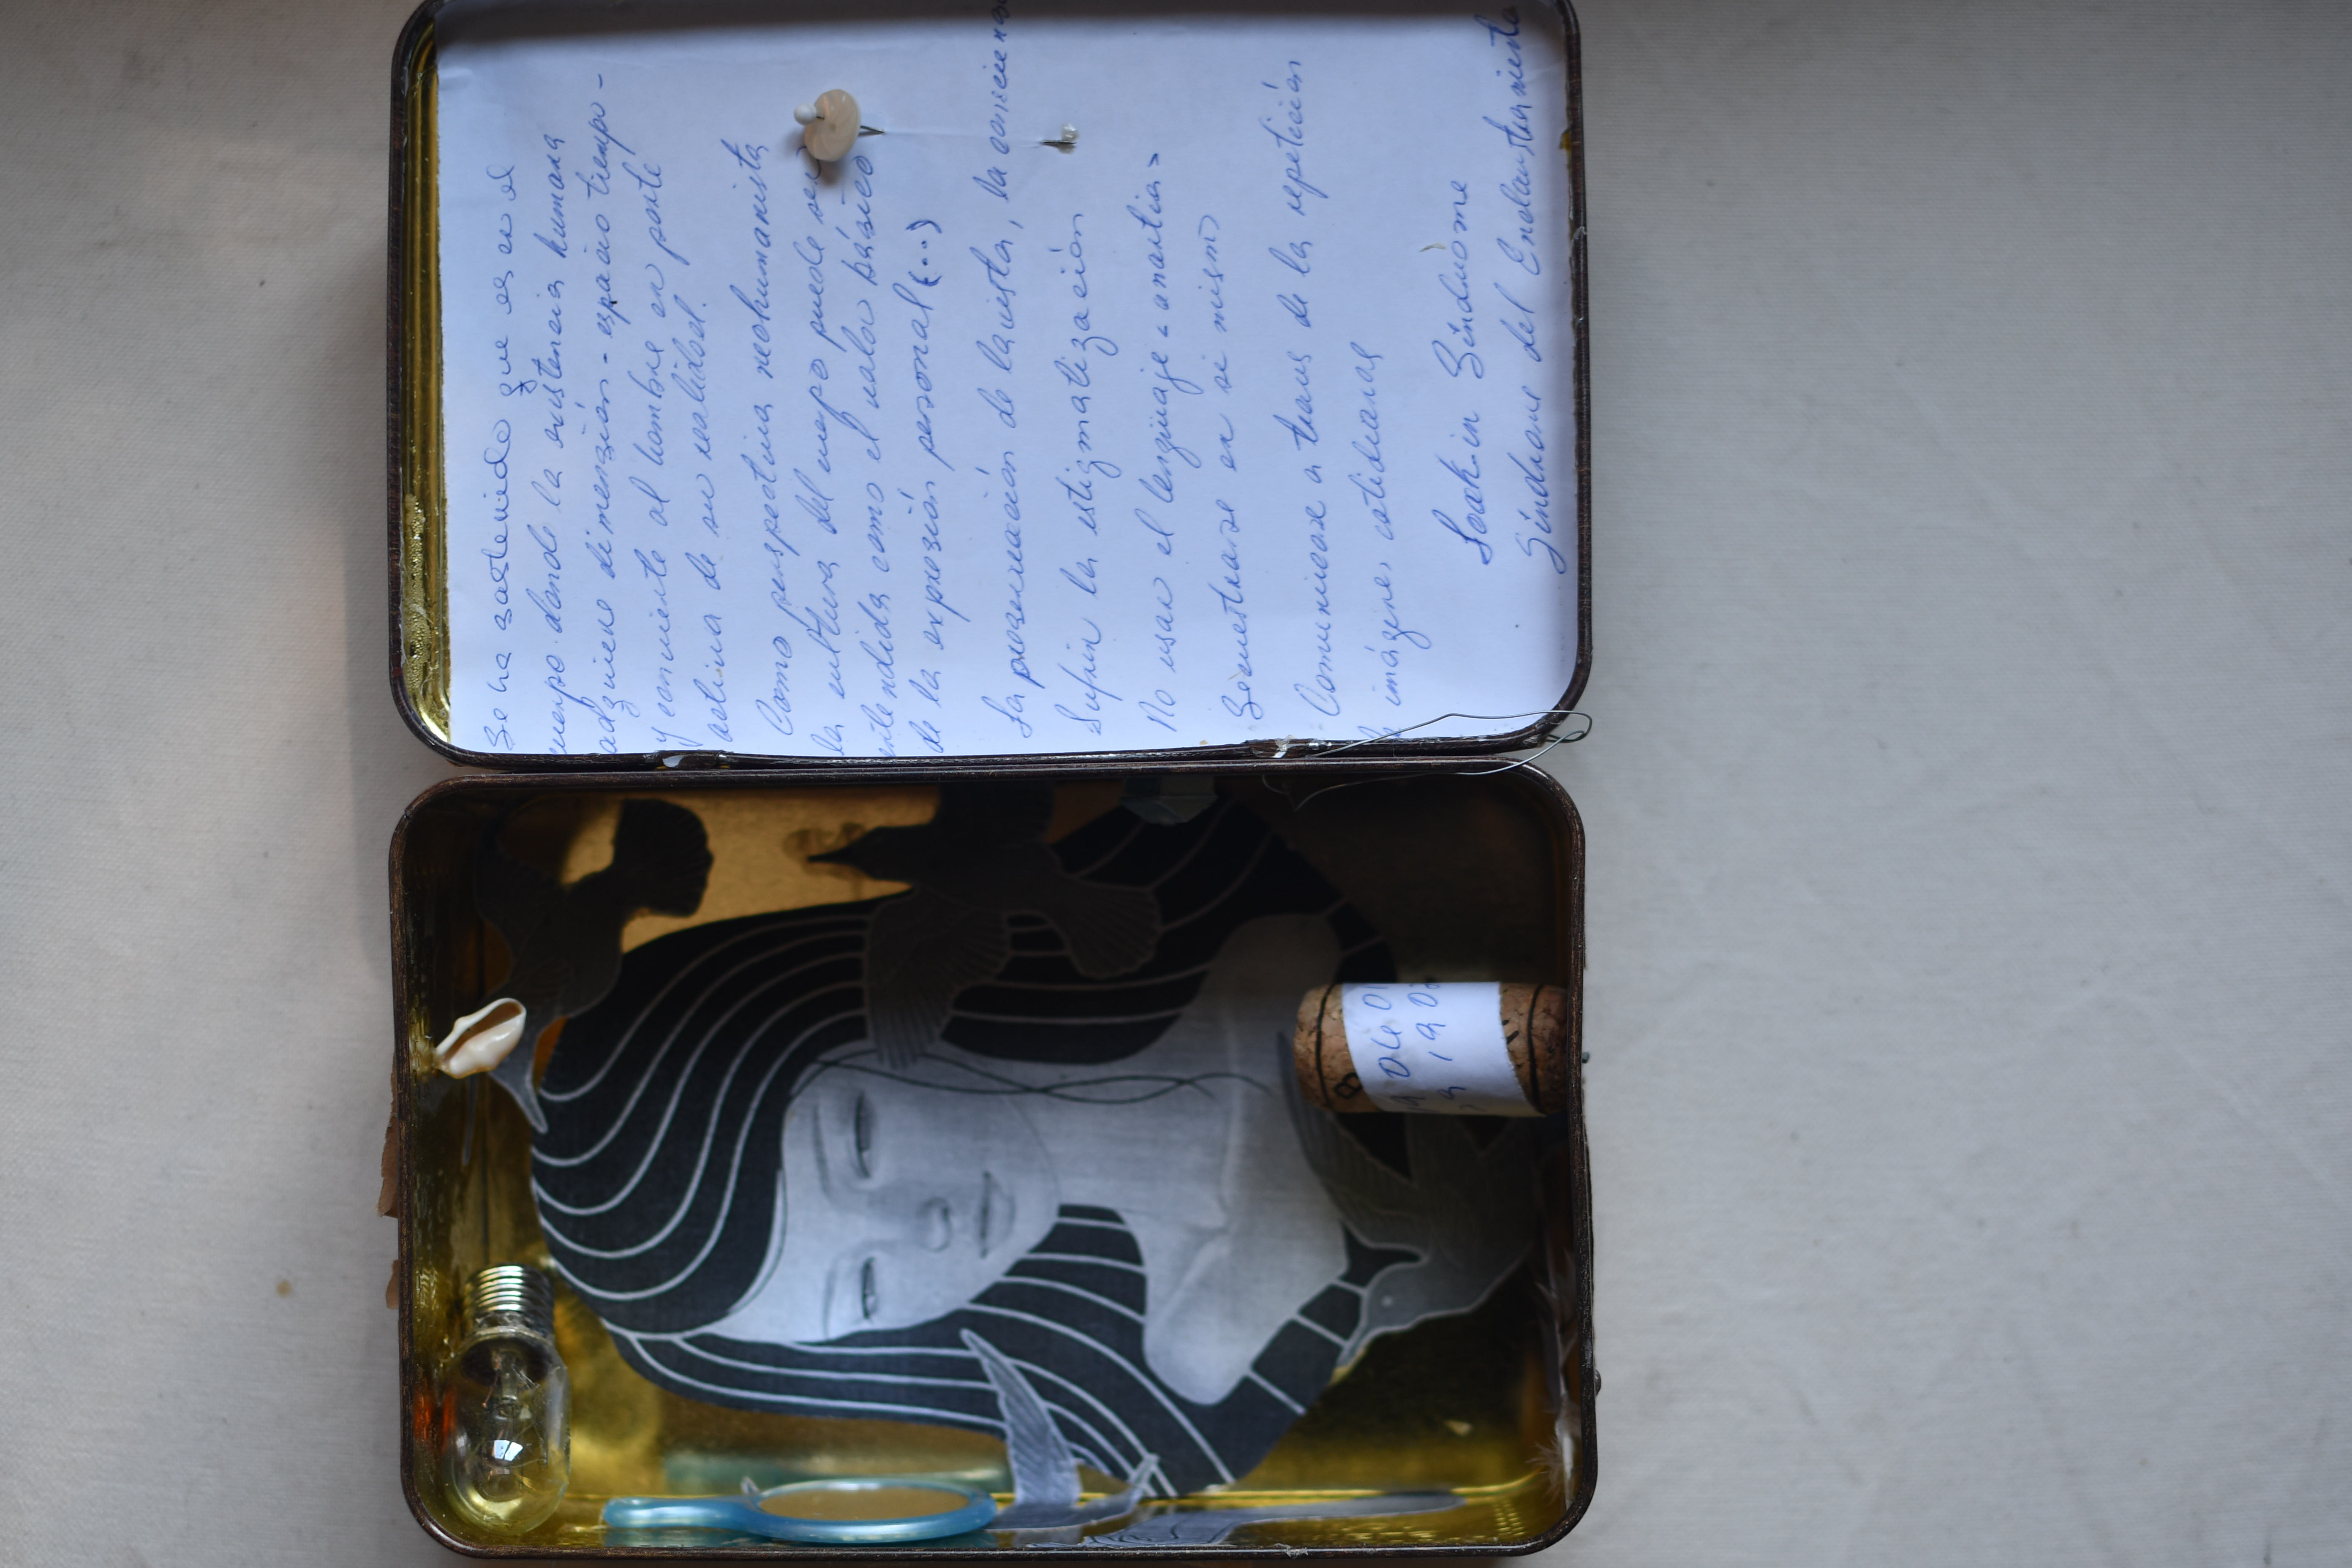 Se ha sostenido que es en el
cuerpo donde la existencia humana
adquiere dimensión - espacio tiempo -
y convierte al hombre en parte
activa de su realidad.
Como perspectiva neohumanista
la cultura del cuerpo puede ser
entendida como el valor básico
de la expresión personal (...)
La preservación de la vista, la conciencia
Sufrir la estigmatización
No usar el lenguaje
Secuestrarse en si mismo
Comunicarse a traves de la repetición
imágenes cotidianas
Lock-in Síndrome
Síndrome del Enclaustramiento